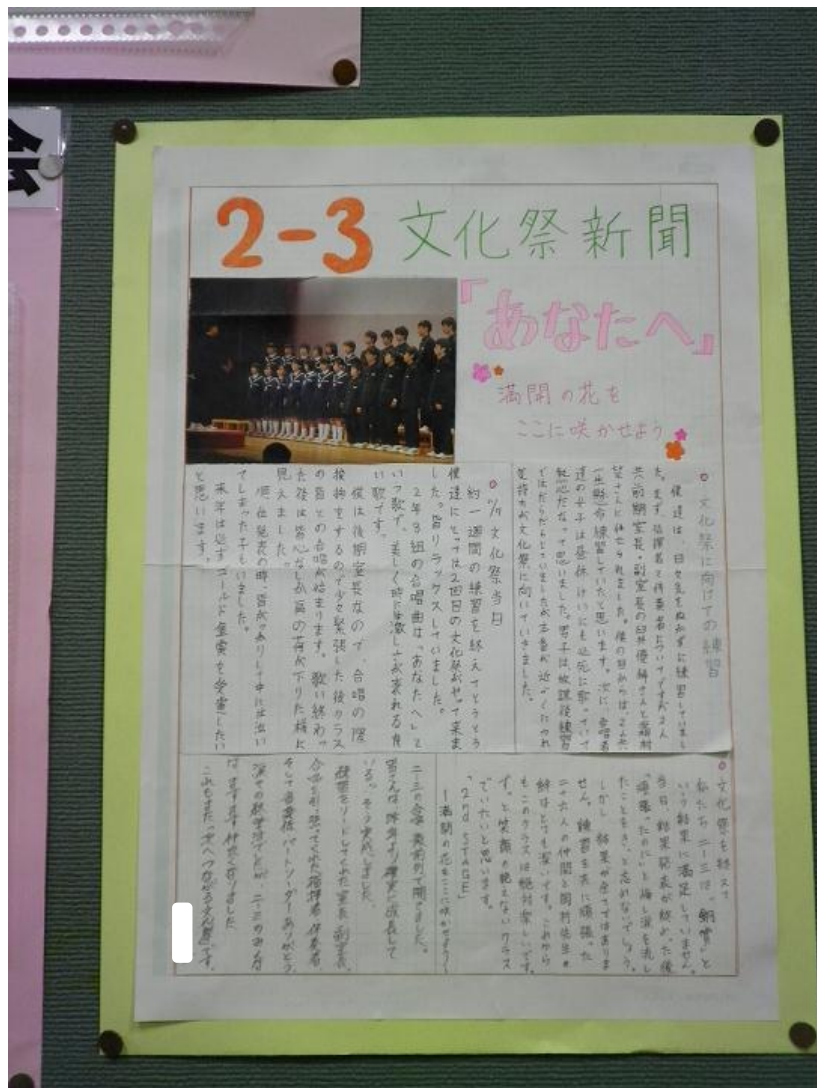 2-3 文化祭新聞
「あなたへ」
満開の花を
ここに咲かせよう
文化祭に向けての練習
僕達は、日々気をぬかずに練習していまし
た。まず、指揮者と伴奏者についてですが2人
一生懸命練習していたと思います。次に、合唱者
達の女子は昼休けいにも必死に歌っていて
熱心だなって思いました。男子は放課後練習
ではだらだらとしていましたが本番が近くにつれ
気持ちが文化祭に向いていきました。
文化祭当日
約一週間の練習を終えてとうとう
僕達にとっては2回目の文化祭がやって来ま
した。皆リラックスしていました。
2年3組の合唱曲は「あなたへ」と
いう歌で、美しく時には激しさが表れる良
い歌です。
僕は後期室長なので、合唱の際
挨拶をするので少々緊張した後クラス
の皆との合唱が始まります。歌い終わっ
た後は皆心なしか肩の荷が下りた様に
見えました。
順位発表の時、皆がっかりして中には泣い
てしまった子もいました。
来年は必ずゴールド金賞を受賞したい
と思います。
文化祭を終えて
私たち二ー三は、「銅賞」と
いう結果に満足していません。
当日、結果発表が終わった後
「頑張ったのに」と悔し涙を流し
たことをきっと忘れないでしょう。
しかし、結果が全てではありま
せん。練習を共に頑張った
二十六人の仲間と岡村先生の
絆はとても深いです。これから
もこのクラスは絶対楽しいで
す。と笑顔の絶えないクラス
でいたいと思います。
「2nd STAGE」
〜満開の花をここに咲かせよう〜
皆さんは昨年より確実に成長して
いる。そう実感しました。
練習をリードしてくれた室長、副室長、
合唱を引っ張ってくれた指揮者、伴奏者
そして各パートリーダー、ありがとう。
ますます仲よくなりました。
これもまた「次へつながる文化祭」です。